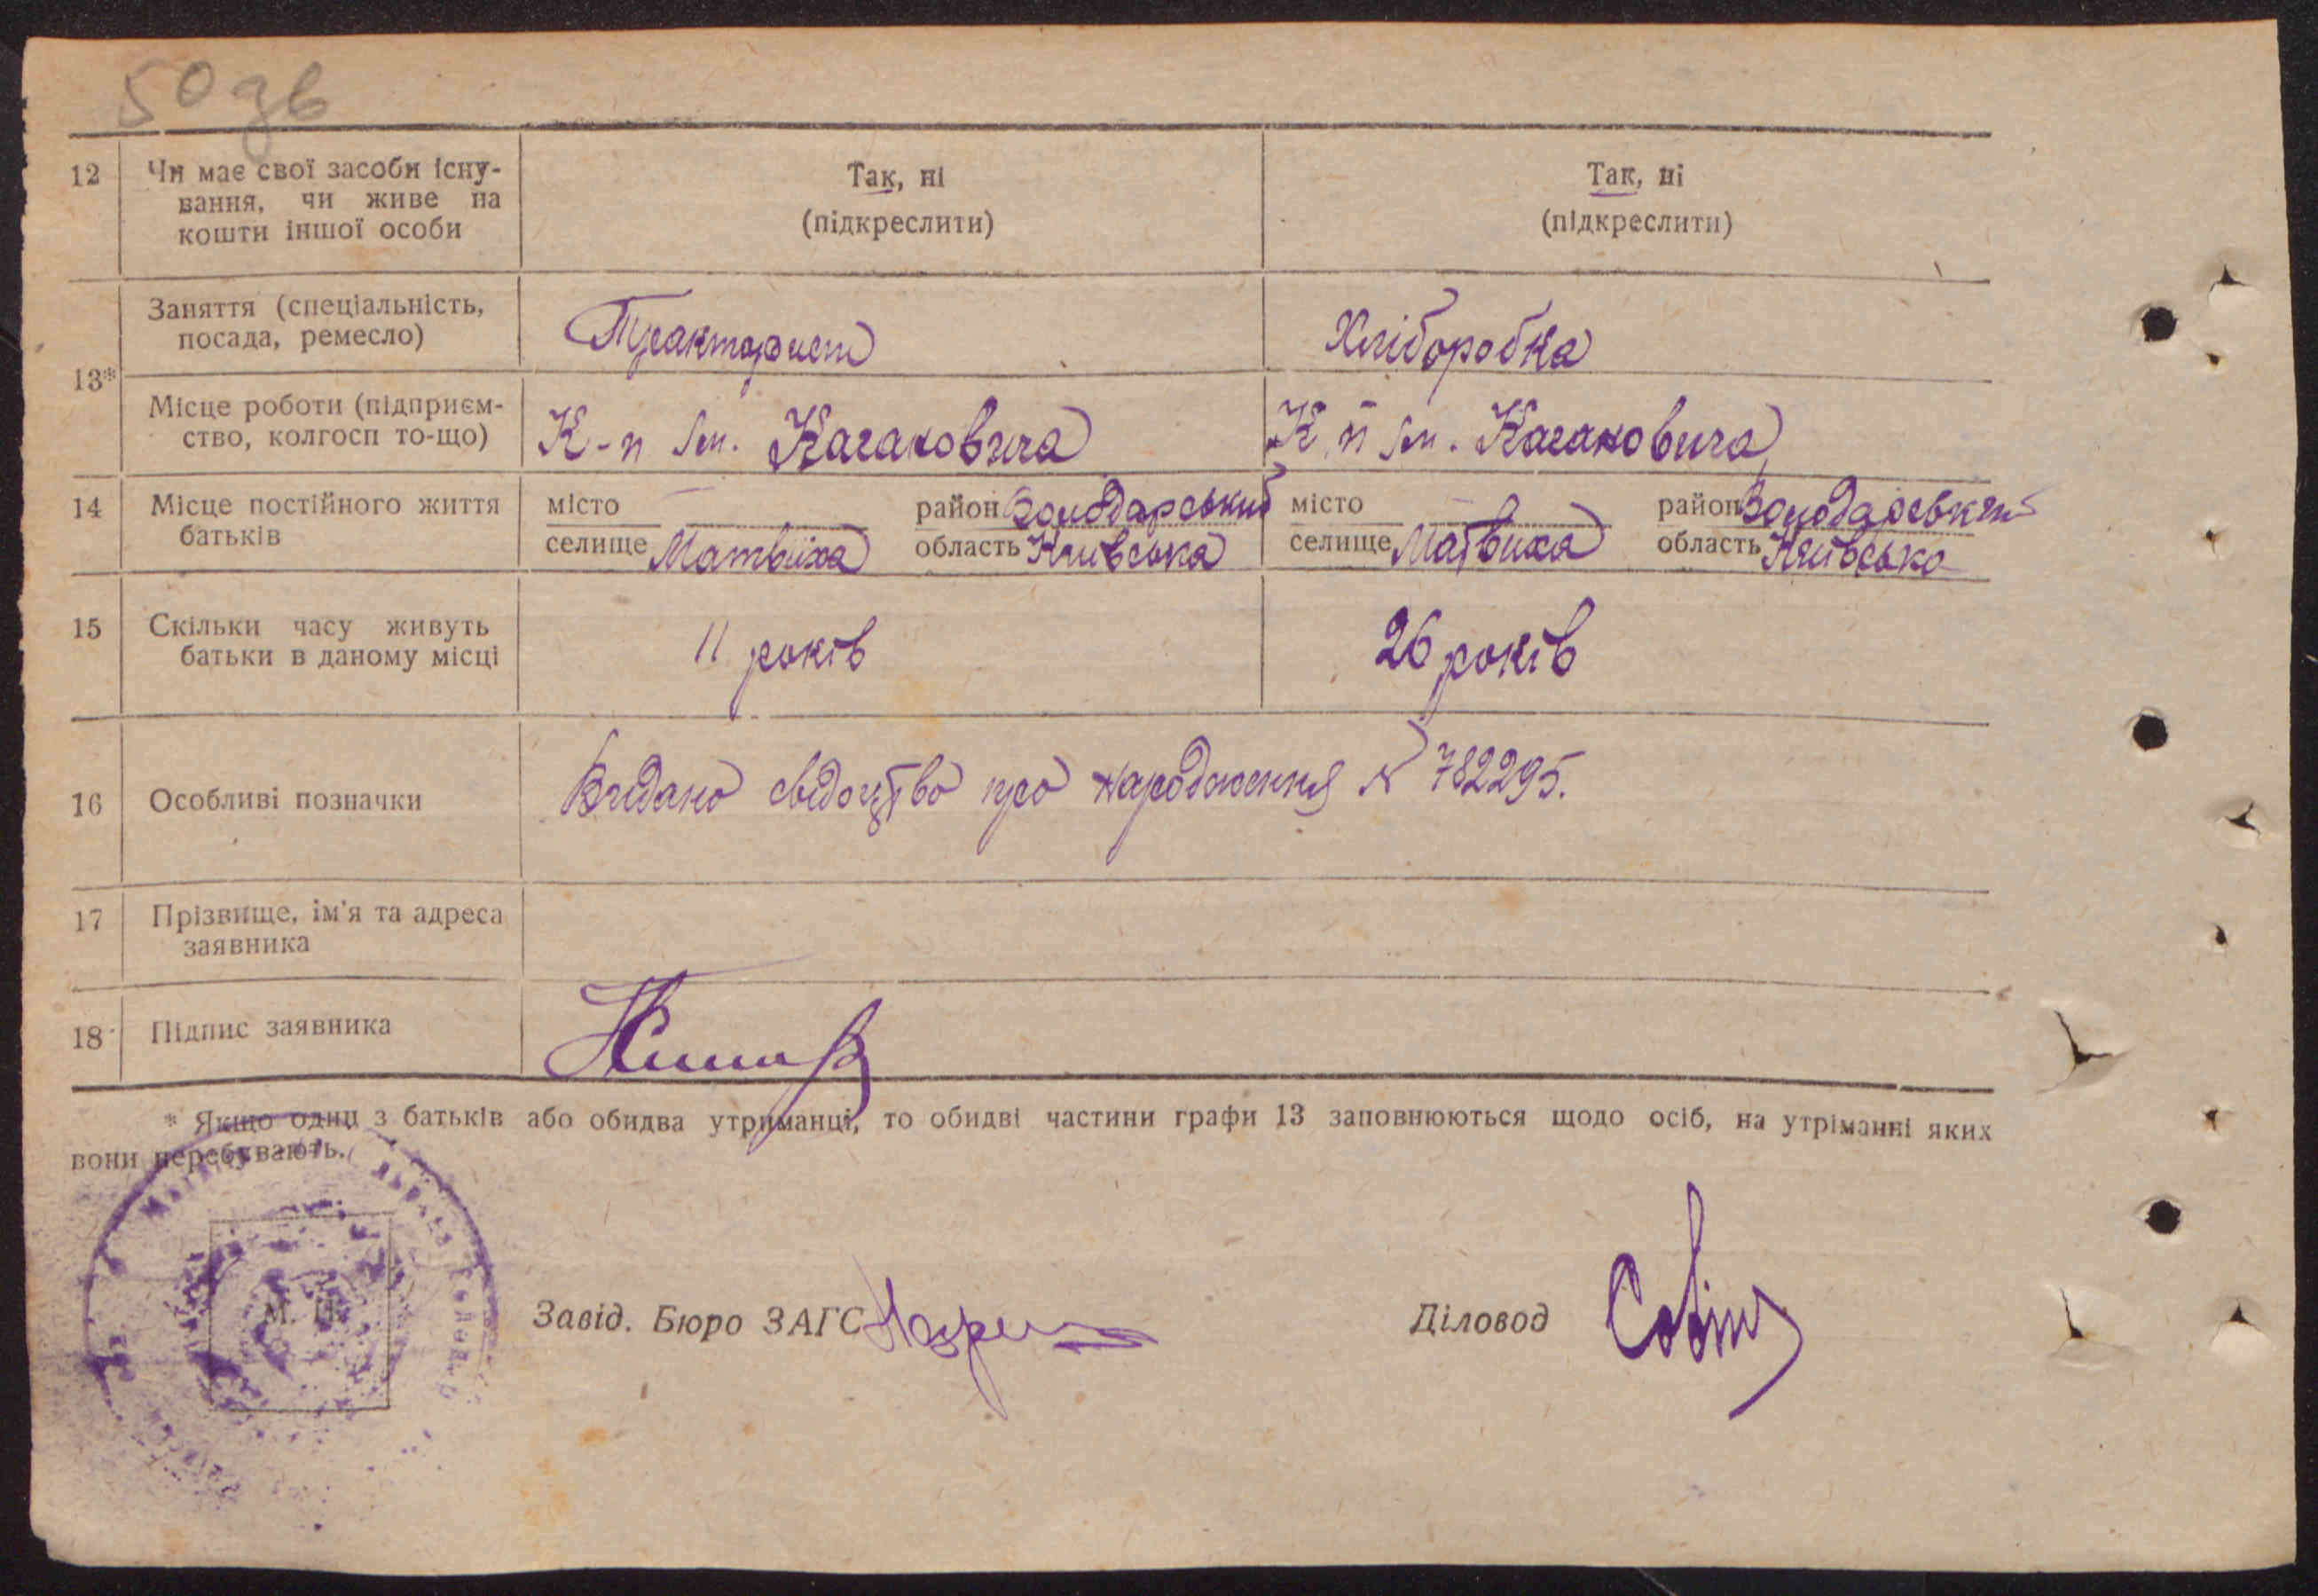 50 зв
12 Чи має свої засоби існу- Так, ні Так, ні
вання, чи живе на (підкреслити) (підкреслити)
кошти іншої особи
Заняття (спеціальність, Тракторист Хліборобка
посада, ремесло)
13*
Місце роботи (підприєм- К-п Ім. Кагановича К п Ім. Кагановича
ство, колгосп то-що)
14 Місце постійного життя місто — район Володарський місто — район Володарський
батьків селище Матвіха область Київська селище Матвиха область Київська
15 Скільки часу живуть 11 років 26 років
батьки в даному місці
16 Особливі позначки Видано свідоцтво про народження N 782295.
17 Прізвище, ім'я та адреса
заявника
18 Підпис заявника
* Якщо один з батьків або обидва утриманці, то обидві частини графи 13 заповнюються щодо осіб, на утріманні яких
вони перебувають.
М. П.
Завід. Бюро ЗАГС Діловод